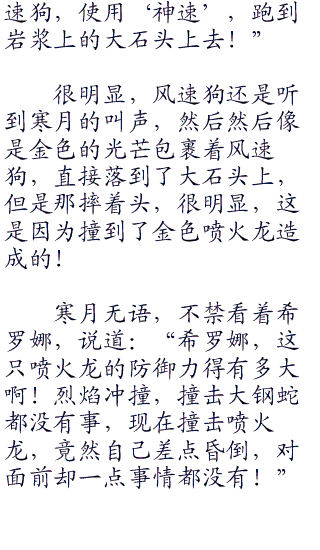 速狗，使用‘神速’，跑到
岩浆上的大石头上去！”
很明显，风速狗还是听
到寒月的叫声，然后然后像
是金色的光芒包裹着风速
狗，直接落到了大石头上，
但是那摔着头，很明显，这
是因为撞到了金色喷火龙造
成的！
寒月无语，不禁看着希
罗娜，说道：“希罗娜，这
只喷火龙的防御力得有多大
啊！烈焰冲撞，撞击大钢蛇
都没有事，现在撞击喷火
龙，竟然自己差点昏倒，对
面前却一点事情都没有！”